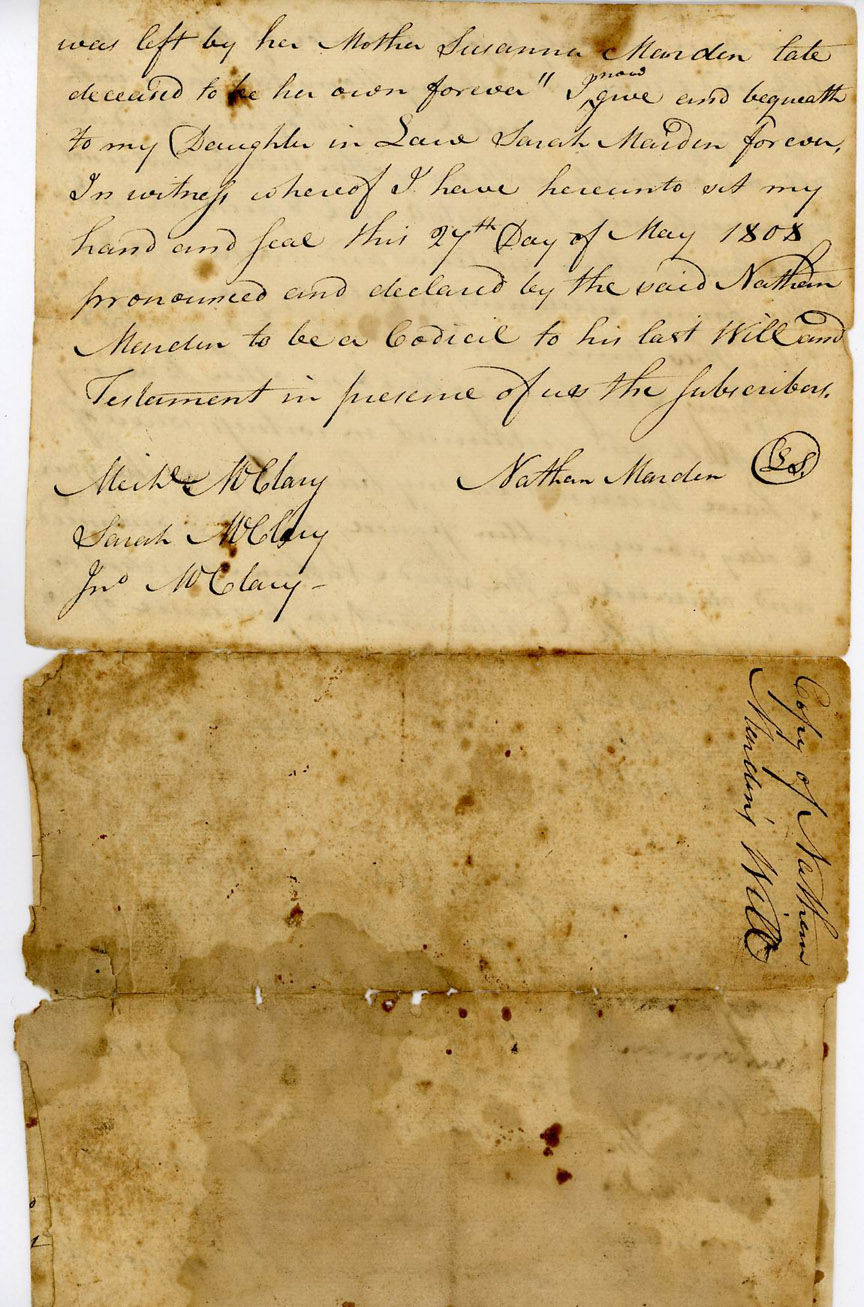 was left by her Mother Susanna Marden late
deceased to be her own forever" I now give and bequeath
to my Daughter in Law Sarah Marden forever,
In witness whereof I have hereunto set my
hand and seal this 27th Day of May 1808
pronounced and declared by the said Nathan
Marden to be a Codicil to his last Will and
Testament in presence of us the subscribers.
Michl McClary
Nathan Marden LS.
Sarah McClary
Jno McClary -
Copy of Nathan
Marden's Will